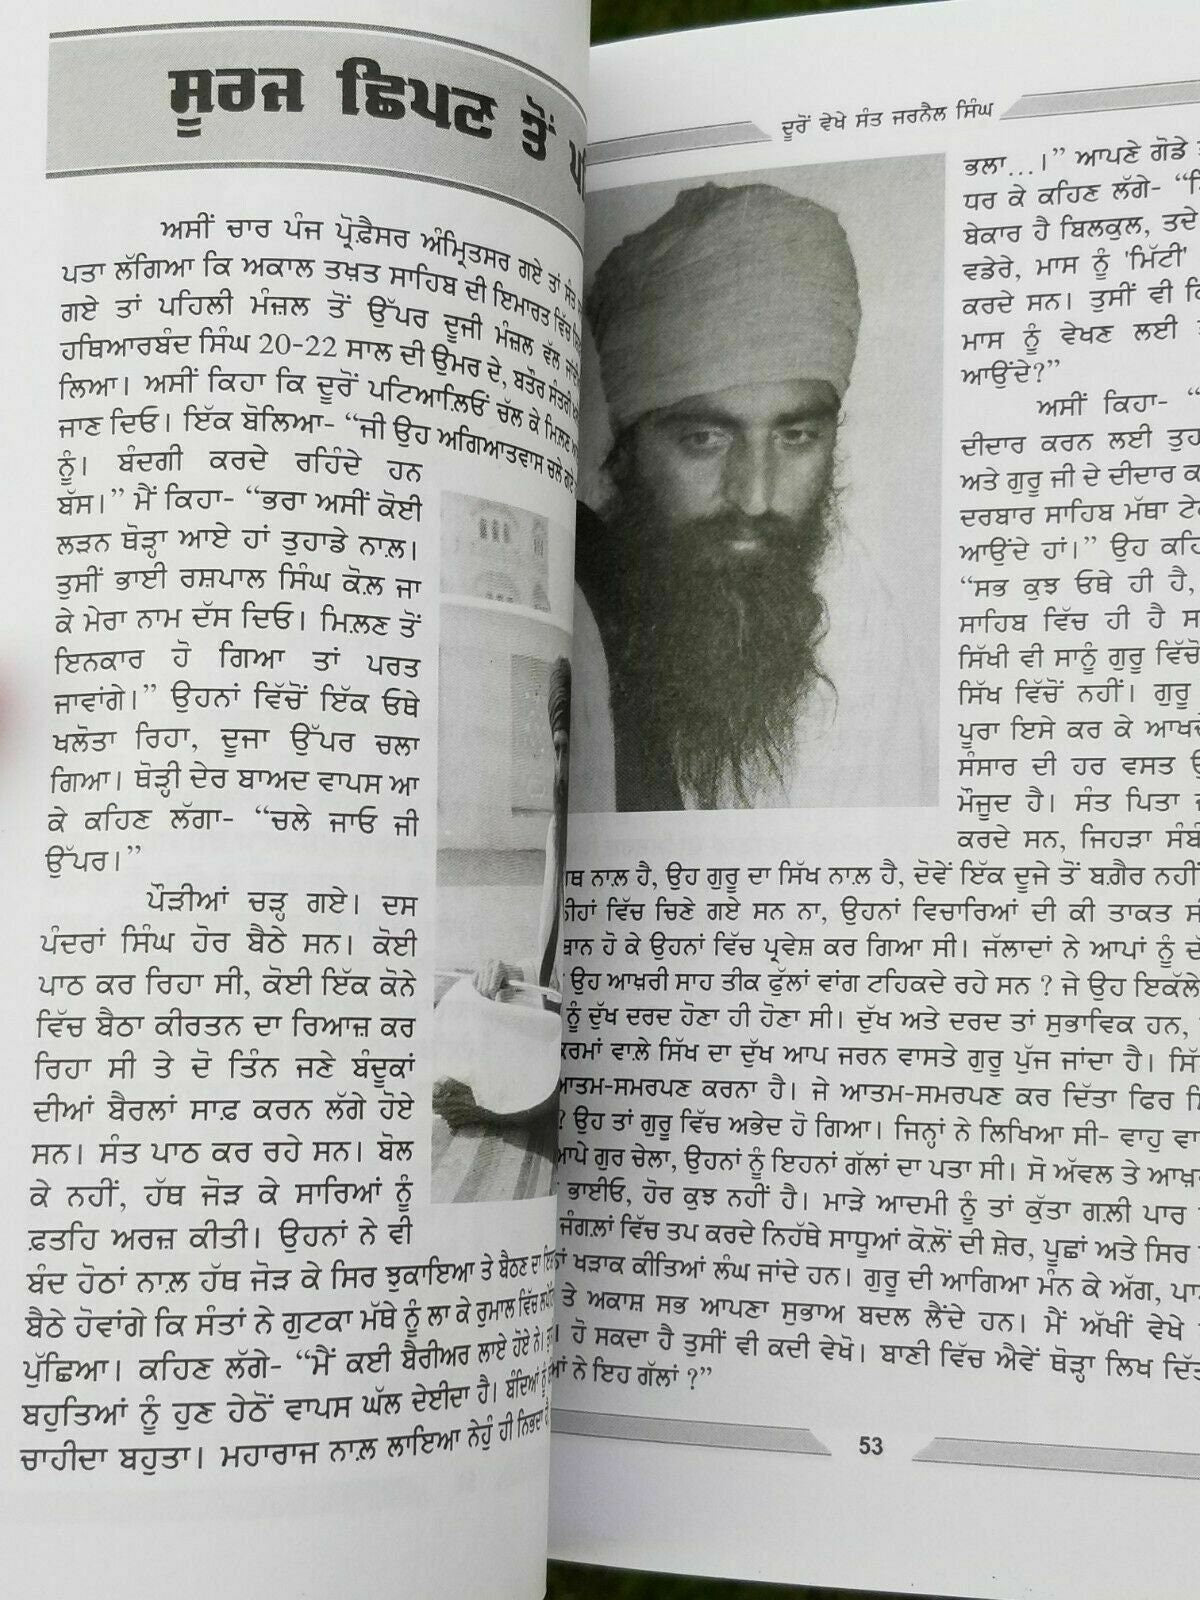 ਸੂਰਜ ਛਿਪਣ ਤੋਂ
ਅਸੀਂ ਚਾਰ ਪੰਜ ਪ੍ਰੋਫ਼ੈਸਰ ਅੰਮ੍ਰਿਤਸਰ ਗਏ ਤਾਂ ਸੰਤ
ਪਤਾ ਲੱਗਿਆ ਕਿ ਅਕਾਲ ਤਖ਼ਤ ਸਾਹਿਬ ਦੀ ਇਮਾਰਤ ਵਿੱਚ
ਗਏ ਤਾਂ ਪਹਿਲੀ ਮੰਜ਼ਲ ਤੋਂ ਉੱਪਰ ਦੂਜੀ ਮੰਜ਼ਲ ਵੱਲ ਜਾਂਦੇ
ਹਥਿਆਰਬੰਦ ਸਿੰਘ 20-22 ਸਾਲ ਦੀ ਉਮਰ ਦੇ, ਬਤੌਰ ਸੰਤਰੀ
ਲਿਆ। ਅਸੀਂ ਕਿਹਾ ਕਿ ਦੂਰੋਂ ਪਟਿਆਲਿਓਂ ਚੱਲ ਕੇ ਮਿਲਣ
ਜਾਣ ਦਿਓ। ਇੱਕ ਬੋਲਿਆ- “ਜੀ ਉਹ ਅਗਿਆਤਵਾਸ ਚਲੇ ਗਏ
ਨੂੰ। ਬੰਦਗੀ ਕਰਦੇ ਰਹਿੰਦੇ ਹਨ
ਬੱਸ।” ਮੈਂ ਕਿਹਾ- “ਭਰਾ ਅਸੀਂ ਕੋਈ
ਲੜਨ ਥੋੜ੍ਹਾ ਆਏ ਹਾਂ ਤੁਹਾਡੇ ਨਾਲ਼।
ਤੁਸੀਂ ਭਾਈ ਰਸ਼ਪਾਲ ਸਿੰਘ ਕੋਲ਼ ਜਾ
ਕੇ ਮੇਰਾ ਨਾਮ ਦੱਸ ਦਿਓ। ਮਿਲਣ ਤੋਂ
ਇਨਕਾਰ ਹੋ ਗਿਆ ਤਾਂ ਪਰਤ
ਜਾਵਾਂਗੇ।” ਉਹਨਾਂ ਵਿੱਚੋਂ ਇੱਕ ਓਥੇ
ਖਲੋਤਾ ਰਿਹਾ, ਦੂਜਾ ਉੱਪਰ ਚਲਾ
ਗਿਆ। ਥੋੜ੍ਹੀ ਦੇਰ ਬਾਅਦ ਵਾਪਸ ਆ
ਕੇ ਕਹਿਣ ਲੱਗਾ- “ਚਲੇ ਜਾਓ ਜੀ
ਉੱਪਰ।”
ਪੌੜੀਆਂ ਚੜ੍ਹ ਗਏ। ਦਸ
ਪੰਦਰਾਂ ਸਿੰਘ ਹੋਰ ਬੈਠੇ ਸਨ। ਕੋਈ
ਪਾਠ ਕਰ ਰਿਹਾ ਸੀ, ਕੋਈ ਇੱਕ ਕੋਨੇ
ਵਿੱਚ ਬੈਠਾ ਕੀਰਤਨ ਦਾ ਰਿਆਜ਼ ਕਰ
ਰਿਹਾ ਸੀ ਤੇ ਦੋ ਤਿੰਨ ਜਣੇ ਬੰਦੂਕਾਂ
ਦੀਆਂ ਬੈਰਲਾਂ ਸਾਫ਼ ਕਰਨ ਲੱਗੇ ਹੋਏ
ਸਨ। ਸੰਤ ਪਾਠ ਕਰ ਰਹੇ ਸਨ। ਬੋਲ
ਕੇ ਨਹੀਂ, ਹੱਥ ਜੋੜ ਕੇ ਸਾਰਿਆਂ ਨੂੰ
ਫ਼ਤਹਿ ਅਰਜ਼ ਕੀਤੀ। ਉਹਨਾਂ ਨੇ ਵੀ
ਬੰਦ ਹੋਠਾਂ ਨਾਲ਼ ਹੱਥ ਜੋੜ ਕੇ ਸਿਰ ਝੁਕਾਇਆ ਤੇ ਬੈਠਣ ਦਾ
ਬੈਠੇ ਹੋਵਾਂਗੇ ਕਿ ਸੰਤਾਂ ਨੇ ਗੁਟਕਾ ਮੱਥੇ ਨੂੰ ਲਾ ਕੇ ਰੁਮਾਲ ਵਿੱਚ
ਪੁੱਛਿਆ। ਕਹਿਣ ਲੱਗੇ- “ਮੈਂ ਕਈ ਬੈਰੀਅਰ ਲਾਏ ਹੋਏ ਨੇ।
ਬਹੁਤਿਆਂ ਨੂੰ ਹੁਣ ਹੇਠੋਂ ਵਾਪਸ ਘੱਲ ਦੇਈਦਾ ਹੈ। ਬੰਦਿਆਂ ਨੂੰ
ਚਾਹੀਦਾ ਬਹੁਤਾ। ਮਹਾਰਾਜ ਨਾਲ਼ ਲਾਇਆ ਨੇਹੁੰ ਹੀ ਨਿਭਦਾ
ਦੂਰੋਂ ਵੇਖੇ ਸੰਤ ਜਰਨੈਲ ਸਿੰਘ
ਭਲਾ...।” ਆਪਣੇ ਗੋਡੇ
ਧਰ ਕੇ ਕਹਿਣ ਲੱਗੇ-
ਬੇਕਾਰ ਹੈ ਬਿਲਕੁਲ, ਤਦੇ
ਵਡੇਰੇ, ਮਾਸ ਨੂੰ 'ਮਿੱਟੀ'
ਕਰਦੇ ਸਨ। ਤੁਸੀਂ ਵੀ
ਮਾਸ ਨੂੰ ਵੇਖਣ ਲਈ
ਆਉਂਦੇ?”
ਅਸੀਂ ਕਿਹਾ-
ਦੀਦਾਰ ਕਰਨ ਲਈ
ਅਤੇ ਗੁਰੂ ਜੀ ਦੇ ਦੀਦਾਰ
ਦਰਬਾਰ ਸਾਹਿਬ ਮੱਥਾ
ਆਉਂਦੇ ਹਾਂ।” ਉਹ
“ਸਭ ਕੁਝ ਓਥੇ ਹੀ ਹੈ,
ਸਾਹਿਬ ਵਿੱਚ ਹੀ ਹੈ
ਸਿੱਖੀ ਵੀ ਸਾਨੂੰ ਗੁਰੂ ਵਿੱਚੋਂ
ਸਿੱਖ ਵਿੱਚੋਂ ਨਹੀਂ। ਗੁਰੂ
ਪੂਰਾ ਇਸੇ ਕਰ ਕੇ ਆਖਦੇ
ਸੰਸਾਰ ਦੀ ਹਰ ਵਸਤ
ਮੌਜੂਦ ਹੈ। ਸੰਤ ਪਿਤਾ
ਕਰਦੇ ਸਨ, ਜਿਹੜਾ
ਨਾਲ਼ ਹੈ, ਉਹ ਗੁਰੂ ਦਾ ਸਿੱਖ ਨਾਲ਼ ਹੈ, ਦੋਵੇਂ ਇੱਕ ਦੂਜੇ ਤੋਂ ਬਗ਼ੈਰ ਨਹੀਂ
ਵਿੱਚ ਚਿਣੇ ਗਏ ਸਨ ਨਾ, ਉਹਨਾਂ ਵਿਚਾਰਿਆਂ ਦੀ ਕੀ ਤਾਕਤ
ਹੋ ਕੇ ਉਹਨਾਂ ਵਿੱਚ ਪ੍ਰਵੇਸ਼ ਕਰ ਗਿਆ ਸੀ। ਜੱਲਾਦਾਂ ਨੇ ਆਪਾਂ ਨੂੰ
ਉਹ ਆਖ਼ਰੀ ਸਾਹ ਤੀਕ ਫੁੱਲਾਂ ਵਾਂਗ ਟਹਿਕਦੇ ਰਹੇ ਸਨ ? ਜੇ ਉਹ ਇਕੱਲੇ
ਨੂੰ ਦੁੱਖ ਦਰਦ ਹੋਣਾ ਹੀ ਹੋਣਾ ਸੀ। ਦੁੱਖ ਅਤੇ ਦਰਦ ਤਾਂ ਸੁਭਾਵਿਕ ਹਨ,
ਕਰਮਾਂ ਵਾਲ਼ੇ ਸਿੱਖ ਦਾ ਦੁੱਖ ਆਪ ਜਰਨ ਵਾਸਤੇ ਗੁਰੂ ਪੁੱਜ ਜਾਂਦਾ ਹੈ।
ਆਤਮ-ਸਮਰਪਣ ਕਰਨਾ ਹੈ। ਜੇ ਆਤਮ-ਸਮਰਪਣ ਕਰ ਦਿੱਤਾ ਫਿਰ
? ਉਹ ਤਾਂ ਗੁਰੂ ਵਿੱਚ ਅਭੇਦ ਹੋ ਗਿਆ। ਜਿਨ੍ਹਾਂ ਨੇ ਲਿਖਿਆ ਸੀ- ਵਾਹੁ
ਆਪੇ ਗੁਰ ਚੇਲਾ, ਉਹਨਾਂ ਨੂੰ ਇਹਨਾਂ ਗੱਲਾਂ ਦਾ ਪਤਾ ਸੀ। ਸੋ ਅੱਵਲ ਤੇ
ਭਾਈਓ, ਹੋਰ ਕੁਝ ਨਹੀਂ ਹੈ। ਮਾੜੇ ਆਦਮੀ ਨੂੰ ਤਾਂ ਕੁੱਤਾ ਗਲ਼ੀ ਪਾਰ
ਜੰਗਲਾਂ ਵਿੱਚ ਤਪ ਕਰਦੇ ਨਿਹੱਥੇ ਸਾਧੂਆਂ ਕੋਲੋਂ ਦੀ ਸ਼ੇਰ, ਪੂਛਾਂ ਅਤੇ ਸਿਰ
ਖੜਾਕ ਕੀਤਿਆਂ ਲੰਘ ਜਾਂਦੇ ਹਨ। ਗੁਰੂ ਦੀ ਆਗਿਆ ਮੰਨ ਕੇ ਅੱਗ,
ਤੇ ਅਕਾਸ਼ ਸਭ ਆਪਣਾ ਸੁਭਾਅ ਬਦਲ ਲੈਂਦੇ ਹਨ। ਮੈਂ ਅੱਖੀਂ ਵੇਖੇ
। ਹੋ ਸਕਦਾ ਹੈ ਤੁਸੀਂ ਵੀ ਕਦੀ ਵੇਖੋ। ਬਾਣੀ ਵਿੱਚ ਐਵੇਂ ਥੋੜ੍ਹਾ ਲਿਖ
ਨੇ ਇਹ ਗੱਲਾਂ ?”
53